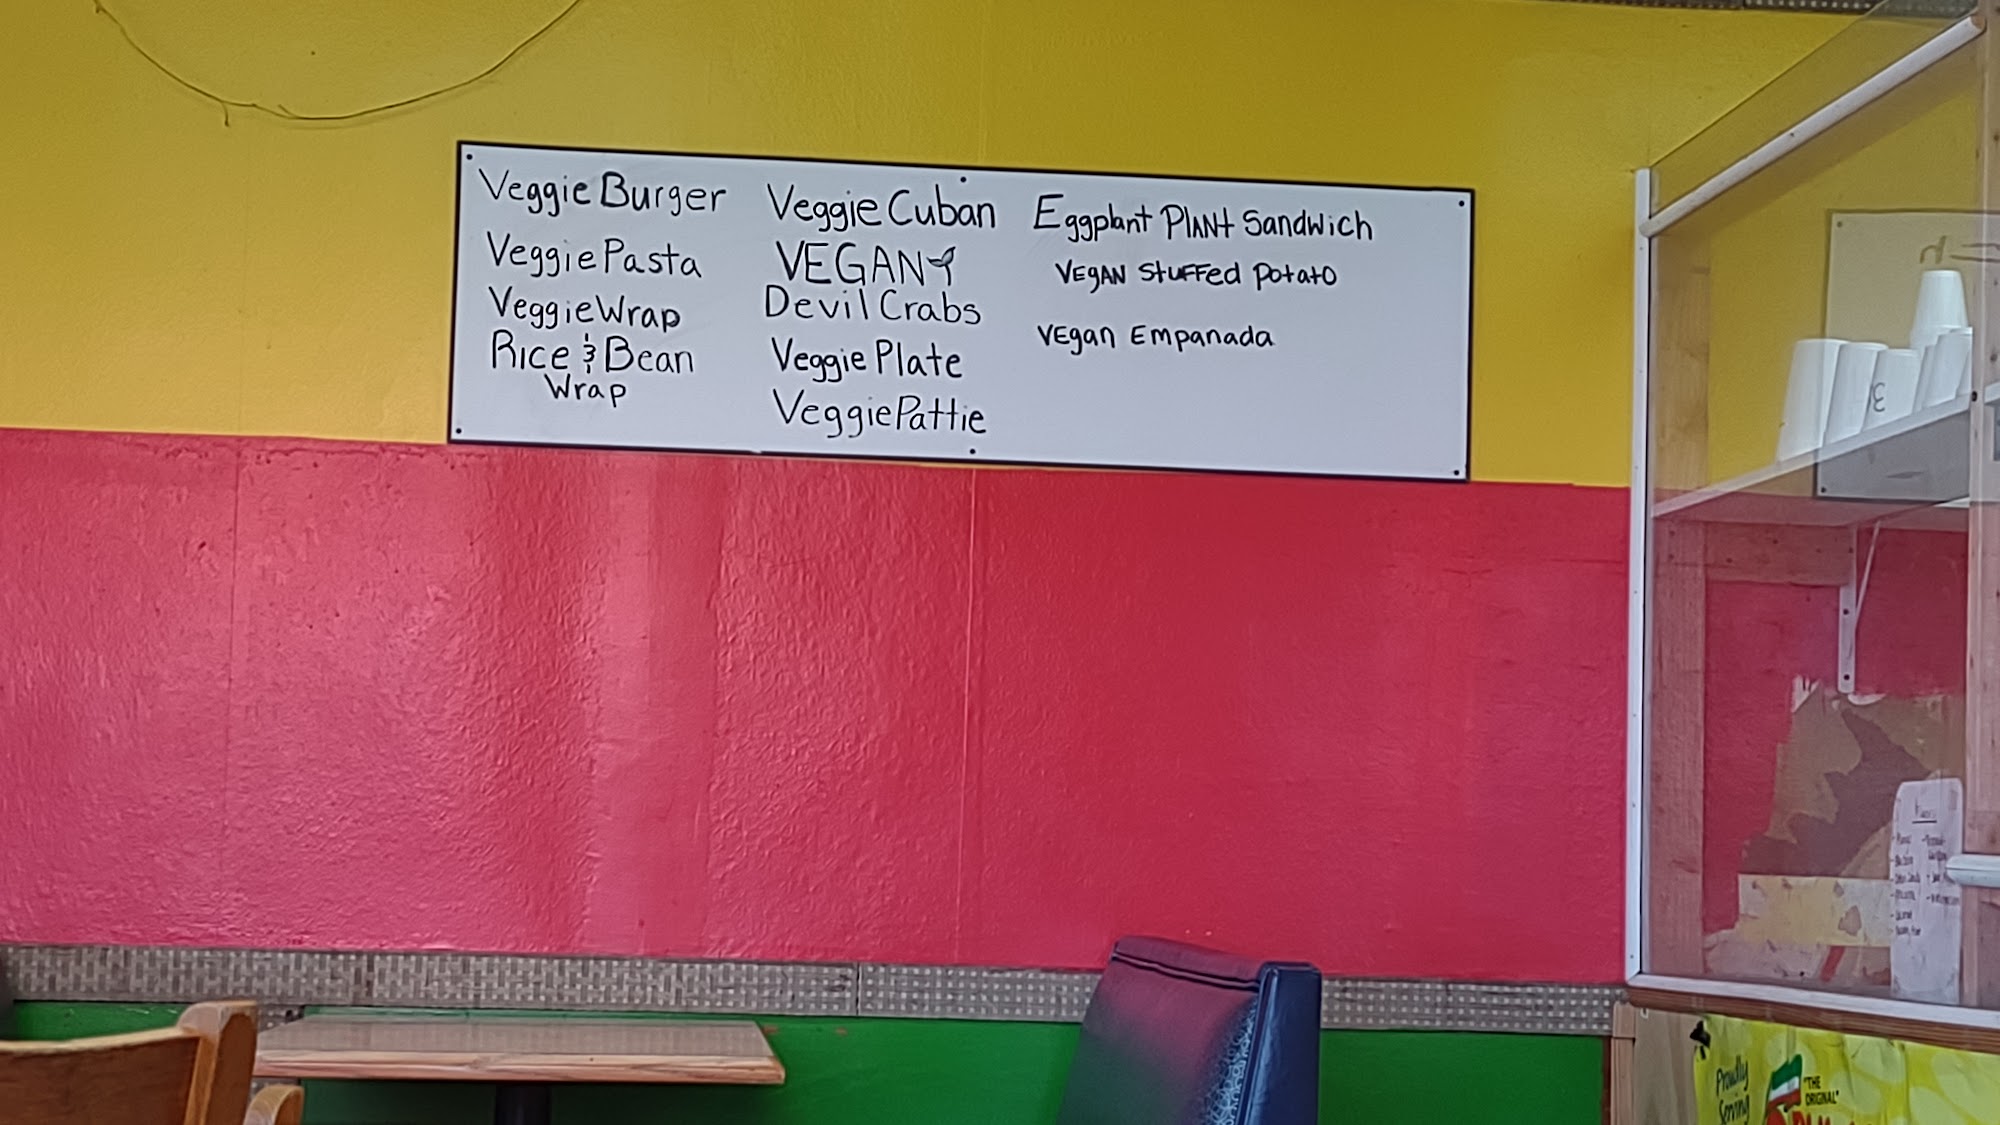 Veggie Burger
Veggie Pasta
Veggie Wrap
Rice & Bean
Wrap
Veggie Cuban
VEGAN
Devil Crabs
Veggie Plate
Veggie Pattie
Eggplant PLANT Sandwich
VEgAN StuFFed Potato
VEgan Empanada
Proudly
Serving
"THE
ORIGINAL"